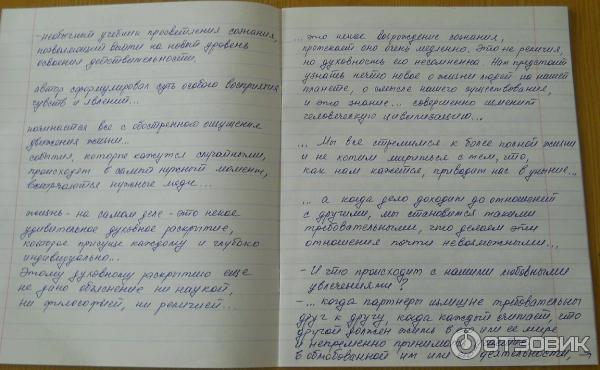 -необычный учебник просветления сознания,
позволяющий выйти на новый уровень
освоения действительности.
автор сформулировал суть особого восприятия
чувств и явлений...
начинается все с обостренного ощущения
движения жизни...
события, которые кажутся случайными,
происходят в самый нужный момент,
встречаются нужные люди...
жизнь - на самом деле - это некое
удивительное духовное раскрытие,
которое присуще каждому и глубоко
индивидуально...
Этому духовному раскрытию еще
не дано объяснение ни наукой,
ни философией, ни религией...
...это некое возрождение сознания,
протекает оно очень медленно. Это не религия,
но духовность его несомненна. Нам предстоит
узнать нечто новое о жизни людей на нашей
планете, о смысле нашего существования,
и это знание... совершенно изменит
человеческую цивилизацию...
... Мы все стремимся к более полной жизни
и не хотим мириться с тем, что,
как нам кажется, приводит нас в уныние...
... а когда дело доходит до отношений
с другими, мы становимся такими
требовательными, что делаем эти
отношения почти невозможными...
- И что происходит с нашими любовными
увлечениями?
-... когда партнеры излишне требовательны
друг к другу, когда каждый считает, что
другой должен жить в его или ее мире
и непременно принимать
в облюбованной им или ей деятельности,
ОТЗОВИК